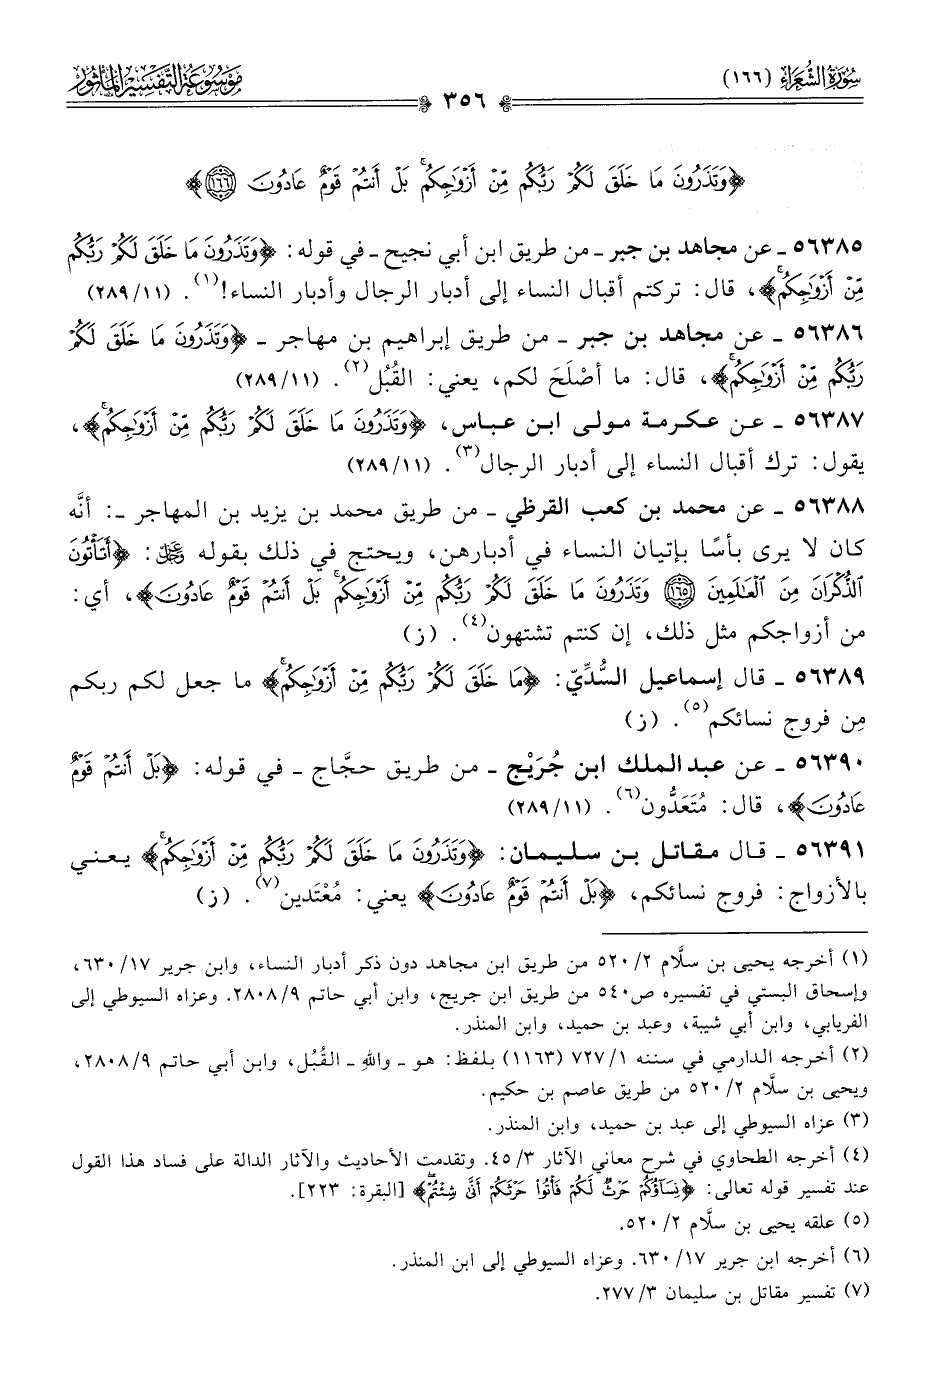 سُورَةُ الشُّعَرَاءِ (١٦٦)
٣٥٦
مَوْسُوعَةُ التَّفْسِيرِ المَأْثُورِ
﴿وَتَذَرُونَ مَا خَلَقَ لَكُمْ رَبُّكُم مِّنْ أَزْوَٰجِكُمۚ بَلْ أَنتُمْ قَوْمٌ عَادُونَ ١٦٦﴾
٥٦٣٨٥ ـ عن مجاهد بن جبر ـ من طريق ابن أبي نجيح ـ في قوله: ﴿وَتَذَرُونَ مَا خَلَقَ لَكُمْ رَبُّكُم
مِّنْ أَزْوَٰجِكُمۚ﴾، قال: تركتم أقبال النساء إلى أدبار الرجال وأدبار النساء!(١). (٢٨٩/١١)
٥٦٣٨٦ ـ عن مجاهد بن جبر ـ من طريق إبراهيم بن مهاجر ـ ﴿وَتَذَرُونَ مَا خَلَقَ لَكُمْ
رَبُّكُم مِّنْ أَزْوَٰجِكُمۚ﴾، قال: ما أصْلَحَ لكم، يعني: القُبُل(٢). (٢٨٩/١١)
٥٦٣٨٧ ـ عن عكرمة مولى ابن عباس، ﴿وَتَذَرُونَ مَا خَلَقَ لَكُمْ رَبُّكُم مِّنْ أَزْوَٰجِكُمۚ﴾،
يقول: ترك أقبال النساء إلى أدبار الرجال(٣). (٢٨٩/١١)
٥٦٣٨٨ ـ عن محمد بن كعب القرظي ـ من طريق محمد بن يزيد بن المهاجر ـ: أنَّه
كان لا يرى بأسًا بإتيان النساء في أدبارهن، ويحتج في ذلك بقوله ﷿: ﴿أَتَأْتُونَ
ٱلذُّكْرَانَ مِنَ ٱلْعَٰلَمِينَ ١٦٥ وَتَذَرُونَ مَا خَلَقَ لَكُمْ رَبُّكُم مِّنْ أَزْوَٰجِكُمۚ بَلْ أَنتُمْ قَوْمٌ عَادُونَ﴾، أي:
من أزواجكم مثل ذلك، إن كنتم تشتهون(٤). (ز)
٥٦٣٨٩ ـ قال إسماعيل السُّدِّيّ: ﴿مَا خَلَقَ لَكُمْ رَبُّكُم مِّنْ أَزْوَٰجِكُمۚ﴾ ما جعل لكم ربكم
مِن فروج نسائكم(٥). (ز)
٥٦٣٩٠ ـ عن عبد الملك ابن جُرَيْج ـ من طريق حجَّاج ـ في قوله: ﴿بَلْ أَنتُمْ قَوْمٌ
عَادُونَ﴾، قال: مُتَعَدُّون(٦). (٢٨٩/١١)
٥٦٣٩١ ـ قال مقاتل بن سليمان: ﴿وَتَذَرُونَ مَا خَلَقَ لَكُمْ رَبُّكُم مِّنْ أَزْوَٰجِكُمۚ﴾ يعني
بالأزواج: فروج نسائكم، ﴿بَلْ أَنتُمْ قَوْمٌ عَادُونَ﴾ يعني: مُعْتَدين(٧). (ز)
(١) أخرجه يحيى بن سلَّام ٥٢٠/٢ من طريق ابن مجاهد دون ذكر أدبار النساء، وابن جرير ٦٣٠/١٧،
وإسحاق البستي في تفسيره ص٥٤٠ من طريق ابن جريج، وابن أبي حاتم ٢٨٠٨/٩. وعزاه السيوطي إلى
الفريابي، وابن أبي شيبة، وعبد بن حميد، وابن المنذر.
(٢) أخرجه الدارمي في سننه ٧٢٧/١ (١١٦٣) بلفظ: هو ـ واللهِ ـ القُبُل، وابن أبي حاتم ٢٨٠٨/٩،
ويحيى بن سلَّام ٥٢٠/٢ من طريق عاصم بن حكيم.
(٣) عزاه السيوطي إلى عبد بن حميد، وابن المنذر.
(٤) أخرجه الطحاوي في شرح معاني الآثار ٤٥/٣. وتقدمت الأحاديث والآثار الدالة على فساد هذا القول
عند تفسير قوله تعالى: ﴿نِسَآؤُكُمْ حَرْثٌ لَّكُمْ فَأْتُوا۟ حَرْثَكُمْ أَنَّىٰ شِئْتُمْۖ﴾ [البقرة: ٢٢٣].
(٥) علقه يحيى بن سلَّام ٥٢٠/٢.
(٦) أخرجه ابن جرير ٦٣٠/١٧. وعزاه السيوطي إلى ابن المنذر.
(٧) تفسير مقاتل بن سليمان ٢٧٧/٣.